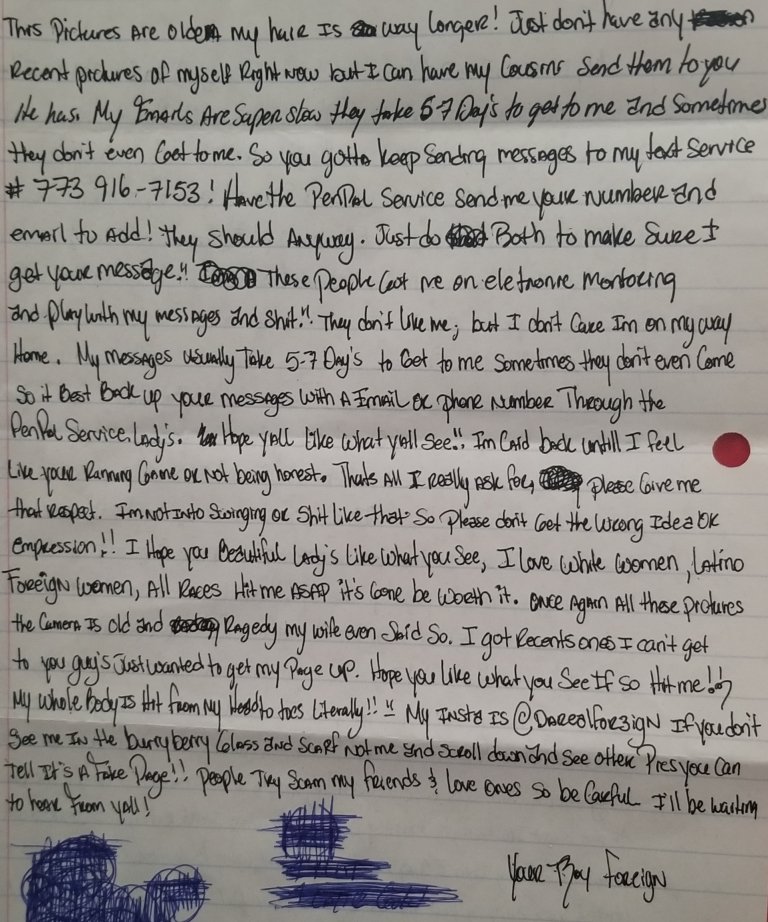 This Pictures Are older my hair Is way longer! Just don't have any
Recent pictures of myself Right Now but I can have my Cousins Send them to you
He has. My Emails Are Super slow they take 5-7 Day's to get to me and Sometimes
they don't even Get to me. So you gotta keep Sending messages to my text Service
# 773 916-7153! Have the PenPal Service Send me your number and
email to Add! They Should Anyway. Just do Both to make Sure I
get your message!! These People Got me on eletronic Montoring
and Play with my messages and shit!! They don't like me, but I don't Care Im on my way
Home. My messages usually Take 5-7 Day's to Get to me Sometimes they don't even Come
So it Best Back up your messages with A Email or phone Number Through the
PenPal Service, Lady's. Hope yall Like what yall See!! I'm Laid back untill I feel
Like your Running Game or Not being honest. Thats All I Really Ask for, please Give me
that Respect. I'm Not Into Swinging or Shit Like that So Please don't Get the Wrong Idea OR
Empression!!! I Hope you Beautiful Lady's Like what you See, I Love White Women, Latino
Foreign Women, All Races Hit me ASAP it's Gone be Worth it. Once Again All these pictures
the Camera Is old and Ragedy my wife even Said So. I got Recents ones I can't get
to you guy's Just wanted to get my Page up. Hope you Like what you See If so Hit me!!
My whole Body Is Hit from My Head to toes Literally!! My Insta Is @Darealfor3ign If you don't
See me In the burryberry Glass and Scarf Not me and Scroll down and See other Pres you Can
Tell It's A Fake Page!! People Try Scam my friends & love ones So be Careful I'll be waiting
to hear from yall!
Your Boy Foreign